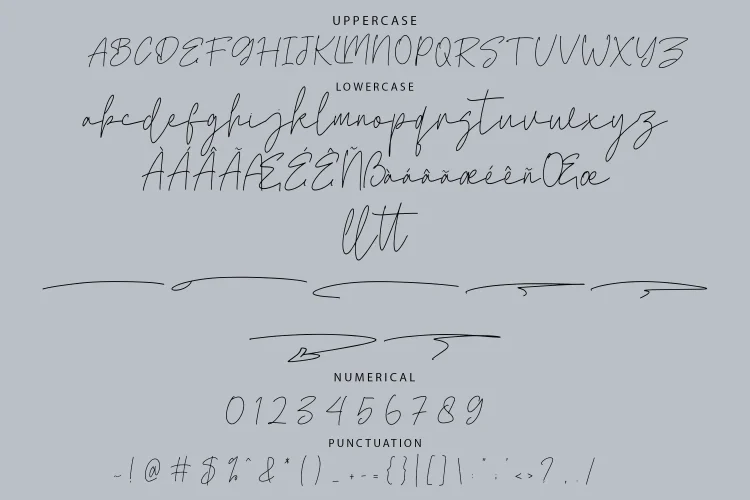 UPPERCASE
ABCDEFGHIJKLMNOPQRSTUVWXYZ
LOWERCASE
abcdefghijklmnopqrstuvwxyz
ÀÁÂÃÆÉÊÑßàáâãæéêñŒœ
ll tt
NUMERICAL
0 1 2 3 4 5 6 7 8 9
PUNCTUATION
~ ! @ # $ % ^ & * ( ) _ + - = { } | [ ] \ : " ; ' < > ? , . /